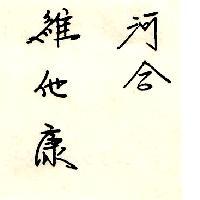 河合
維他康